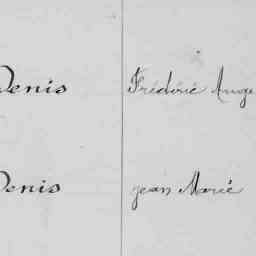 Denis Frédéric Auge
Denis Jean Marie